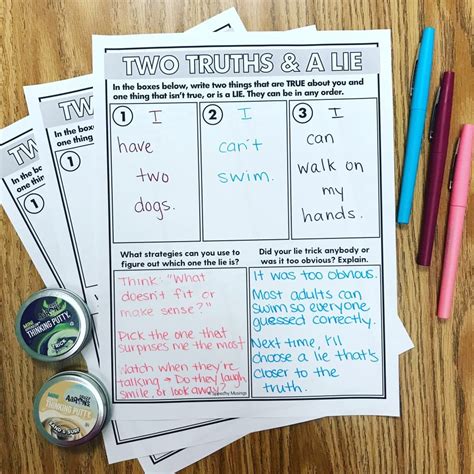 TWO TRUTHS & A LIE
In the boxes below, write two things that are TRUE about you and
one thing that isn't true, or is a LIE. They can be in any order.
1 I
have
two
dogs.
2 I
can't
swim.
3 I
can
walk on
my
hands.
What strategies can you use to
figure out which one the lie is?
Think: "What
doesn't fit or
make sense?"
Pick the one that
surprises me the most
Watch when they're
talking → Do they laugh,
smile, or look away?
Did your lie trick anybody or
was it too obvious? Explain.
It was too obvious.
Most adults can
swim so everyone
guessed correctly.
Next time, I'll
choose a lie that's
closer to the
truth.
TWO
In the boxes
one thing
1
TWO
In the
one
1
MINI
THINKING PUTTY
MINI
THINKING PUTTY